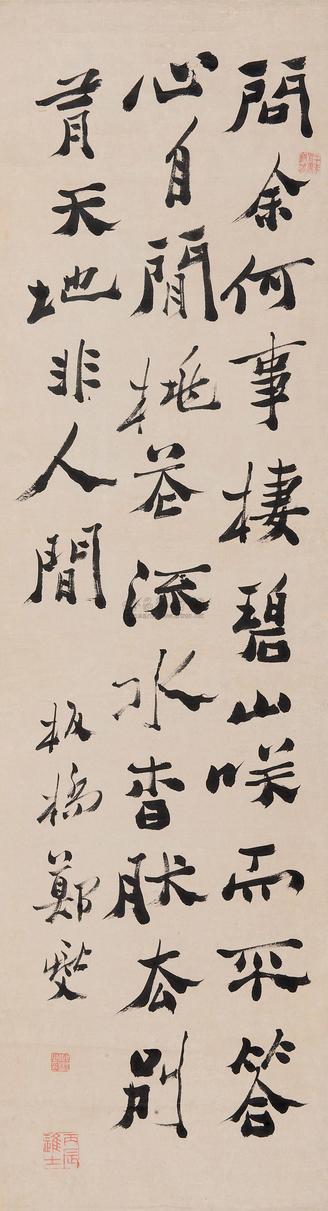 問余何事棲碧山咲而不答
心自閒桃花流水杳然去別
有天地非人間
板橋鄭燮
丙辰進士